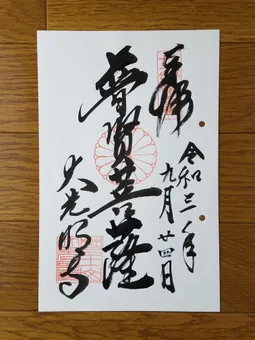 奉拝
令和三年
九月廿四日
普賢菩薩
大光明寺